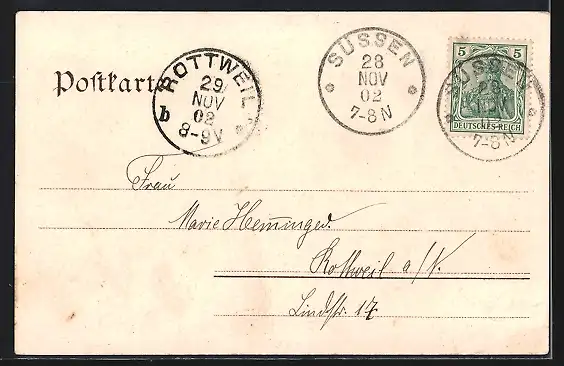 Postkarte
ROTTWEIL
29
NOV
02
8-9V
b
SÜSSEN
28
NOV
02
7-8N
5 5
DEUTSCHES-REICH
SÜSSEN
28
NOV
02
7-8N
Frau
Marie
Rottweil a/N.
Lindstr. 17